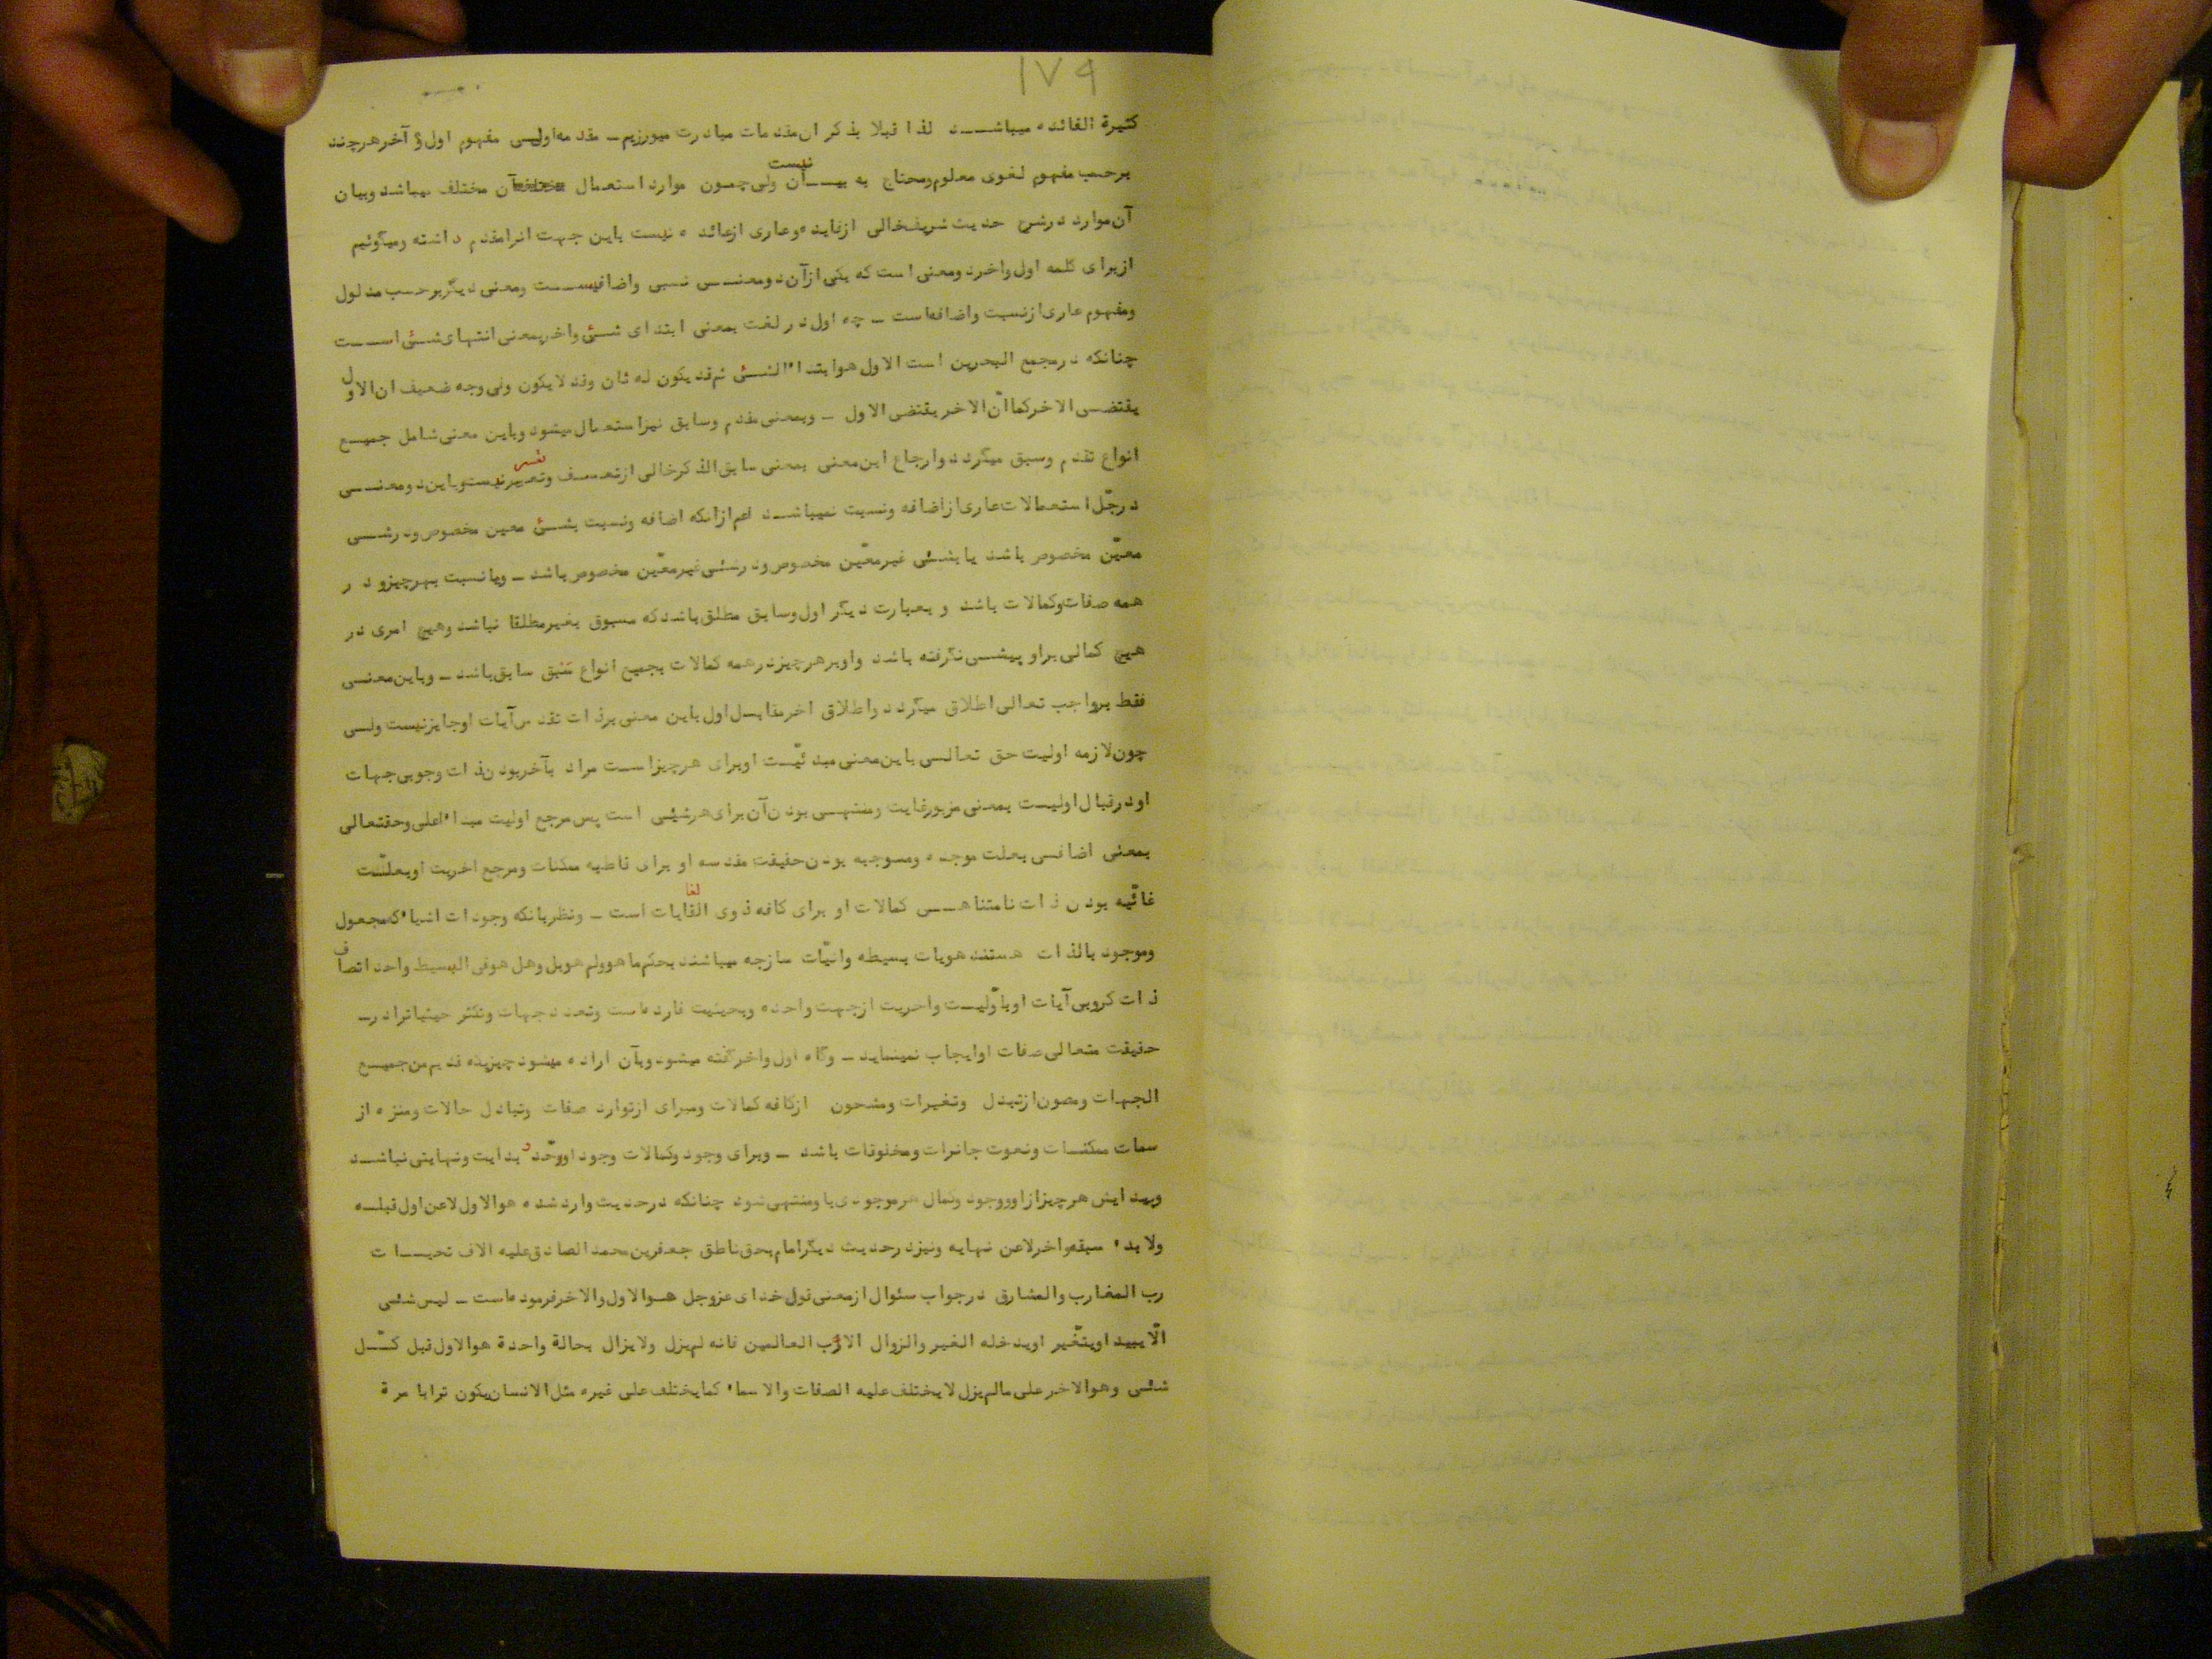 ۱۷۹
کثیرة الفائده میباشد لذا قبلا بذکر ان مقدمات مبادرت میورزیم ــ مقدمه اولی مفهوم اول و آخر هرچند
برحسب مفهوم لغوی معلوم ومحتاج به بیــان نیست ولی چـون موارد استعمال آن مختلف میباشد وبیان
آن موارد درشرح حدیث شریف خالی ازفایده وعاری ازعائده نیست باین جهت انرا مقدم داشته ومیگوئیم
ازبرای کلمه اول واخردومعنی است که یکی ازآن دومعنی نسبی واضافیست ومعنی دیگربرحسب مدلول
ومفهوم عاری ازنسبت واضافه است ــ چه اول در لغت بمعنی ابتدای شئ واخربمعنی انتهای شئ است
چنانکه درمجمع البحرین است الاول هوابتداء الشئ ثم قد یکون له ثان وقد لایکون وفی وجه ضعیف ان الاول
یقتضی الاخرکما انّ الاخر یقتضی الاول ــ وبمعنی مقدم وسابق نیزاستعمال میشود وباین معنی شامل جمیع
انواع تقدم وسبق میگردد وارجاع این معنی بمعنی سابق الذکرخالی ازتعسف وتعییرنیست وباین دومعنی
درجّل استعمالات عاری ازاضافه ونسبت نمیباشد اعم ازانکه اضافه ونسبت بشئ معین مخصوص ودرشی
معیّن مخصوص باشد یا بشئی غیرمعیّن مخصوص ودرشئی غیرمعیّن مخصوص باشد ــ ویا نسبت بهرچیزودر
همه صفات وکمالات باشد و بعبارت دیگر اول وسابق مطلق باشدکه مسبوق بغیرمطلقا نباشد وهیچ امری در
هیچ کمالی براو پیشی نگرفته باشد واوبرهرچیزدرهمه کمالات بجمیع انواع سَبق سابق باشد ــ وباین معنی
فقط برواجب تعالی اطلاق میگردد واطلاق اخرمقابل اول باین معنی برذات تقدس آیات اوجایزنیست ولی
چون لازمه اولیت حق تعالی باین معنی مبدئیّت اوبرای هرچیزاست مراد بآخربودن ذات وجوبی جهات
اودرقبال اولیت بمعنی مزبورغایت ومنتهی بودن آن برای هرشیئی است پس مرجع اولیت مبداء اعلی وحقتعالی
بمعنی اضافی بعلت موجده وموجبه بودن حقیقت مقدسه او برای قاطبه ممکنات ومرجع اخریت اوبعلّت
غائیه بودن ذات نامتناهی کمالات او برای کافه ذوی الغایات است ــ ونظربانکه وجودات اشیاء که مجعول
وموجود بالذات هستند هویات بسیطه وانیّات سازجه میباشند بحکم ما هوولم هوبل وهل هوفی البسیط واحد اتصاف
ذات کروبی آیات اوباوّلیت واخریت ازجهت واحده وبحیثیت فارده است وتعدد جهات وتکثر حیثیاترا در
حقیقت متعالی صفات اوایجاب نمینماید ــ وگاه اول واخرگفته میشود وبآن اراده میشود چیزیکه قدیم من جمیع
الجهات ومصون ازتبدل وتغیرات ومشحون ازکافه کمالات ومبرای ازتوارد صفات وتبادل حالات ومنزه از
سمات ممکنات ونعوت جائزات ومخلوقات باشد ــ وبرای وجود وکمالات وجود اووحّدو بدایت ونهایتی نباشد
وپیدایش هرچیزازاووجود وکمال هرموجودی باومنتهی شود چنانکه درحدیث وارد شده هوالاول لاعن اول قبله
ولا بدء سبقه واخرلاعن نهایه ونیزدرحدیث دیگرامام بحق ناطق جعفربن محمد الصادق علیه الاف تحیـات
رب المغارب والمشارق درجواب سئوال ازمعنی قول خدای عزوجل هوالاول والاخرفرموده است ــ لیس شئی
الّا یبید اویتغّیر اویدخله الغیر والزوال الا رّب العالمین فانه لم یزل ولایزال بحالة واحدة هوالاول قبل کـّل
شئی وهوالاخر علی مالم یزل لایختلف علیه الصفات والاسماء کمایختلف علی غیره مثل الانسان یکون ترابا مرة